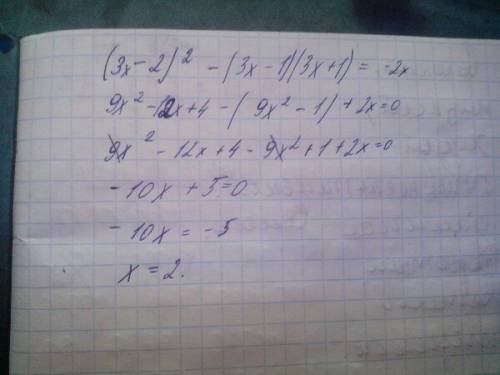 (3x-2)² - (3x-1)(3x+1) = -2x
9x² - 12x + 4 - (9x² - 1) + 2x = 0
9x² - 12x + 4 - 9x² + 1 + 2x = 0
-10x + 5 = 0
-10x = -5
x = 2.